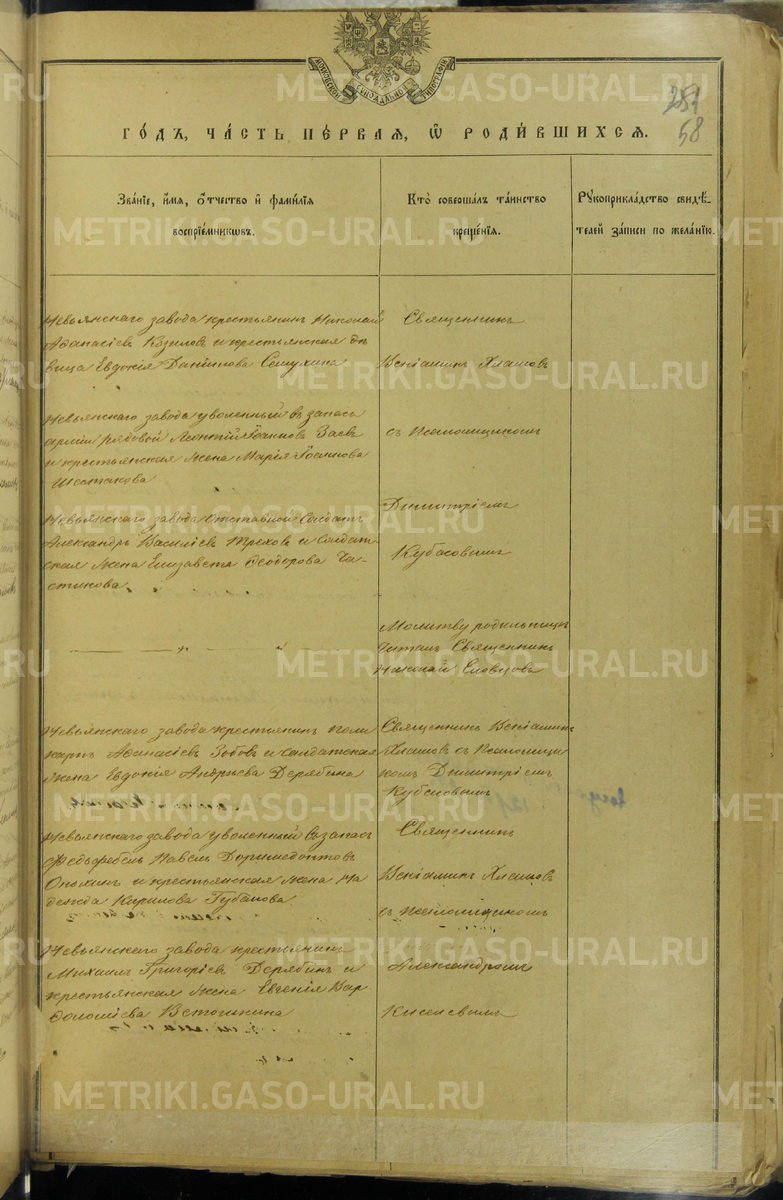 МОСКОВСКОЙ СѴНОДАЛЬНО ТИПОГРАФІИ
251
58
ГО́ДЪ, ЧА́СТЬ ПЕ́РВАЯ, Ѿ РОДИ́ВШИХСЯ.
Зва́ніе, и́мя, о́тчество и҆ фами́лія
воспріе́мникѡвъ.
Кто̀ соверша́лъ та́инство
креще́нія.
Рꙋкоприкла́дство свидѣ́-
телей за́писи по жела́нію.
Невьянскаго завода крестьянинъ Николай
Аѳанасіевъ Козиловъ и крестьянская дѣ
вица Евдокія Данилова Семухина
Священникъ
Веніаминъ Хлашовъ
Невьянскаго завода уволенный въ запасъ
арміи рядовой Леонтій Іоанновъ Заевъ
и крестьянская жена Марія Іоаннова
Шестакова
съ Псаломщикомъ
Димитріемъ
Невьянскаго завода отставной солдатъ
Александръ Василіевъ Треховъ и солдат
ская жена Елизавета Ѳеодорова Ча-
стикова
Кубасовымъ
Молитву родильницѣ
читалъ Священникъ
Николай Словцовъ
Невьянскаго завода крестьянинъ Поли
карпъ Аѳанасіевъ Зобовъ и солдатская
жена Евдокія Андріева Дерябина
Священникъ Веніаминъ
Хлашовъ съ Псаломщи
комъ Димитріемъ
Кубасовымъ
Невьянскаго завода уволенный въ запасъ
Фельдфебель Павелъ Доримедонтовъ
Онохинъ и крестьянская жена На
дежда Карилова Губанова
Священникъ
Веніаминъ Хлашовъ
съ псаломщикомъ
Невьянскаго завода крестьянинъ
Михаилъ Григоріевъ Дерябинъ и
крестьянская жена Евгенія Вар
ѳоломіева Ветошкина
Александромъ
Киселевымъ
METRIKI.GASO-URAL.RU